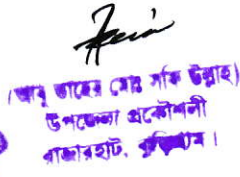 (আবু তাহের মোঃ সফি উল্লাহ)
উপজেলা প্রকৌশলী
রাজারহাট, কুড়িগ্রাম।